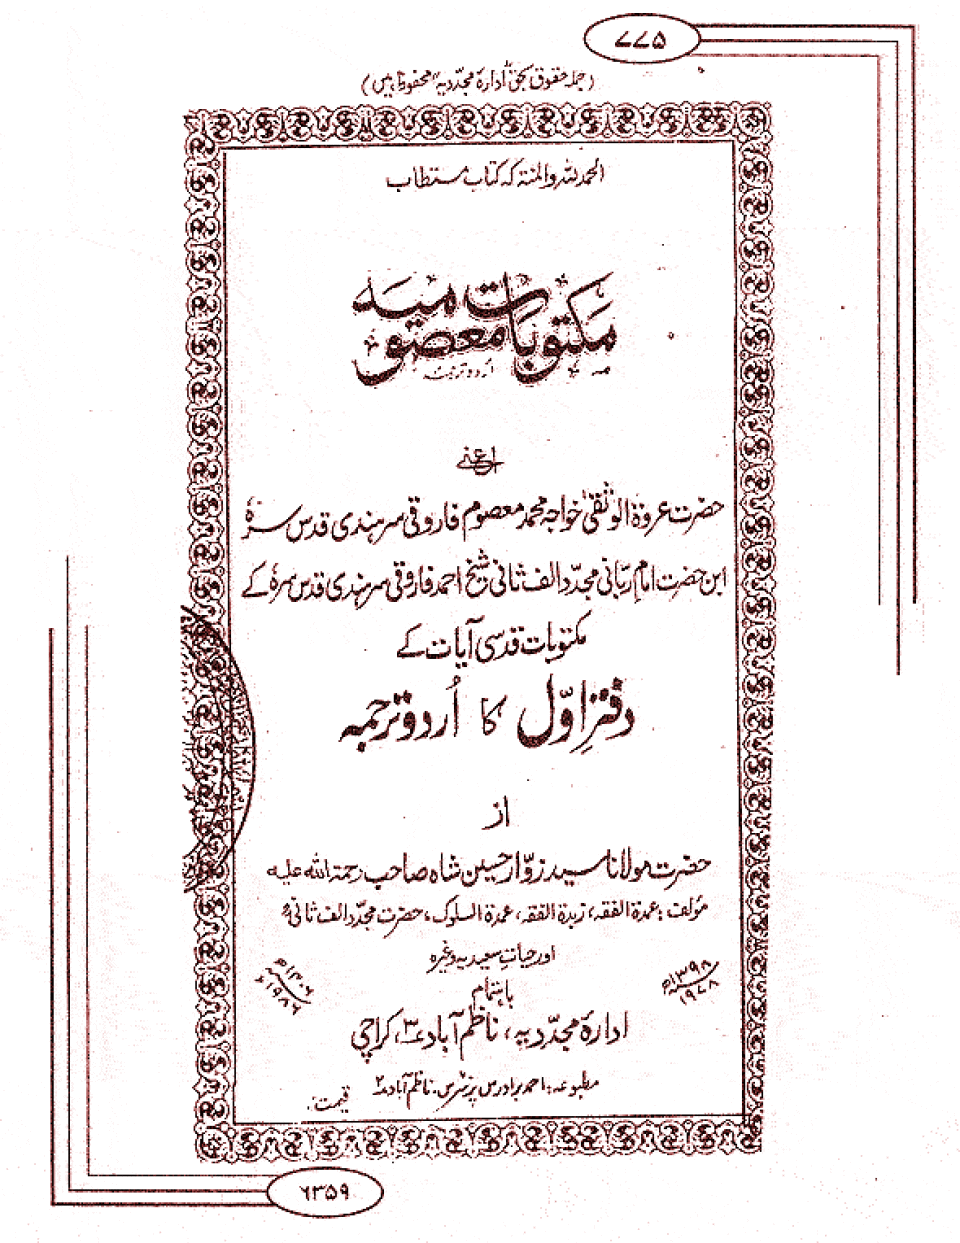 ۷۷۵
(جملہ حقوق بحق ادارۂ مجدّدیہ محفوظ ہیں)
الحمد للہ والمنۃ کہ کتاب مستطاب
مکتوبات معصومیہ
اردو ترجمہ
اعنی
حضرت عروۃ الوثقیٰ خواجہ محمد معصوم فاروقی سرہندی قدس سرہٗ
ابن حضرت امام ربانی مجدّد الف ثانی شیخ احمد فاروقی سرہندی قدس سرہٗ کے
مکتوبات قدسی آیات کے
دفترِ اوّل کا اُردو ترجمہ
از
حضرت مولانا سید زوّار حسین شاہ صاحب رحمۃ اللہ علیہ
مؤلف: عمدۃ الفقہ، زبدۃ الفقہ، عمدۃ السلوک، حضرت مجدّد الف ثانیؒ
اور حیاتِ سعیدیہ وغیرہ
۱۳۹۸ھ
۱۹۷۸ء
۱۴۰۶ھ
۱۹۸۶ء
باہتمام
ادارۂ مجدّدیہ، ناظم آباد ۳، کراچی
مطبوعہ: احمد برادرس پرنٹرس، ناظم آباد ۲
قیمت:
۶۳۵۹